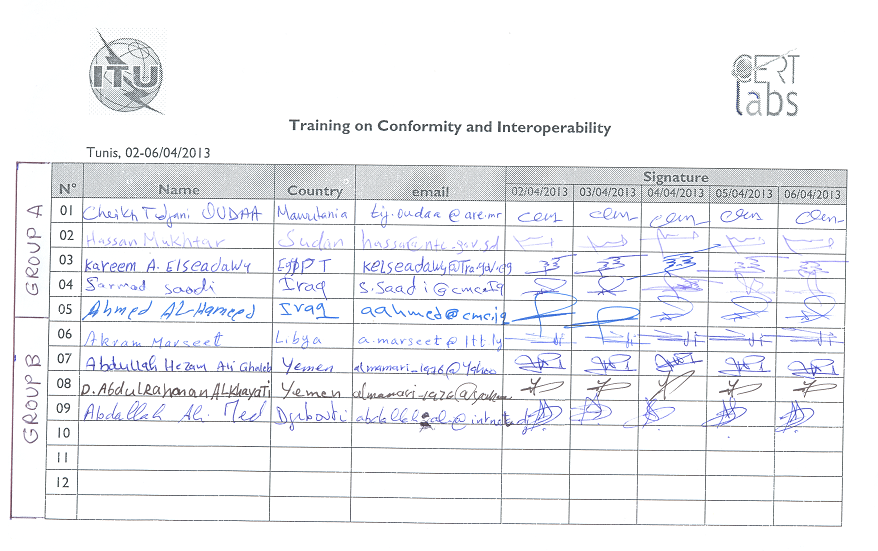 ITU
CERT
labs
Training on Conformity and Interoperability
Tunis, 02-06/04/2013
Signature
N° Name Country email 02/04/2013 03/04/2013 04/04/2013 05/04/2013 06/04/2013
GROUP A
01 Cheikh Tidjani OUDAA Mauritania tij.oudaa@are.mr
02 Hassan Mukhtar Sudan hassa@ntc.gov.sd
03 Kareem A. Elseadawy EgyPT
04 Sarmad Saadi Iraq s.saadi@cmc.iq
05 Ahmed AL-Hameed Iraq aahmed@cmc.iq
GROUP B
06 Akram Marseet Libya a.marseet@lttly
07 Abdullah Hezam Ali Ghaleb Yemen almamari_1976@Yahoo
08 D. AbdulRahman ALKhayati Yemen
09 Abdallah Ali Med Djibouti
10
11
12